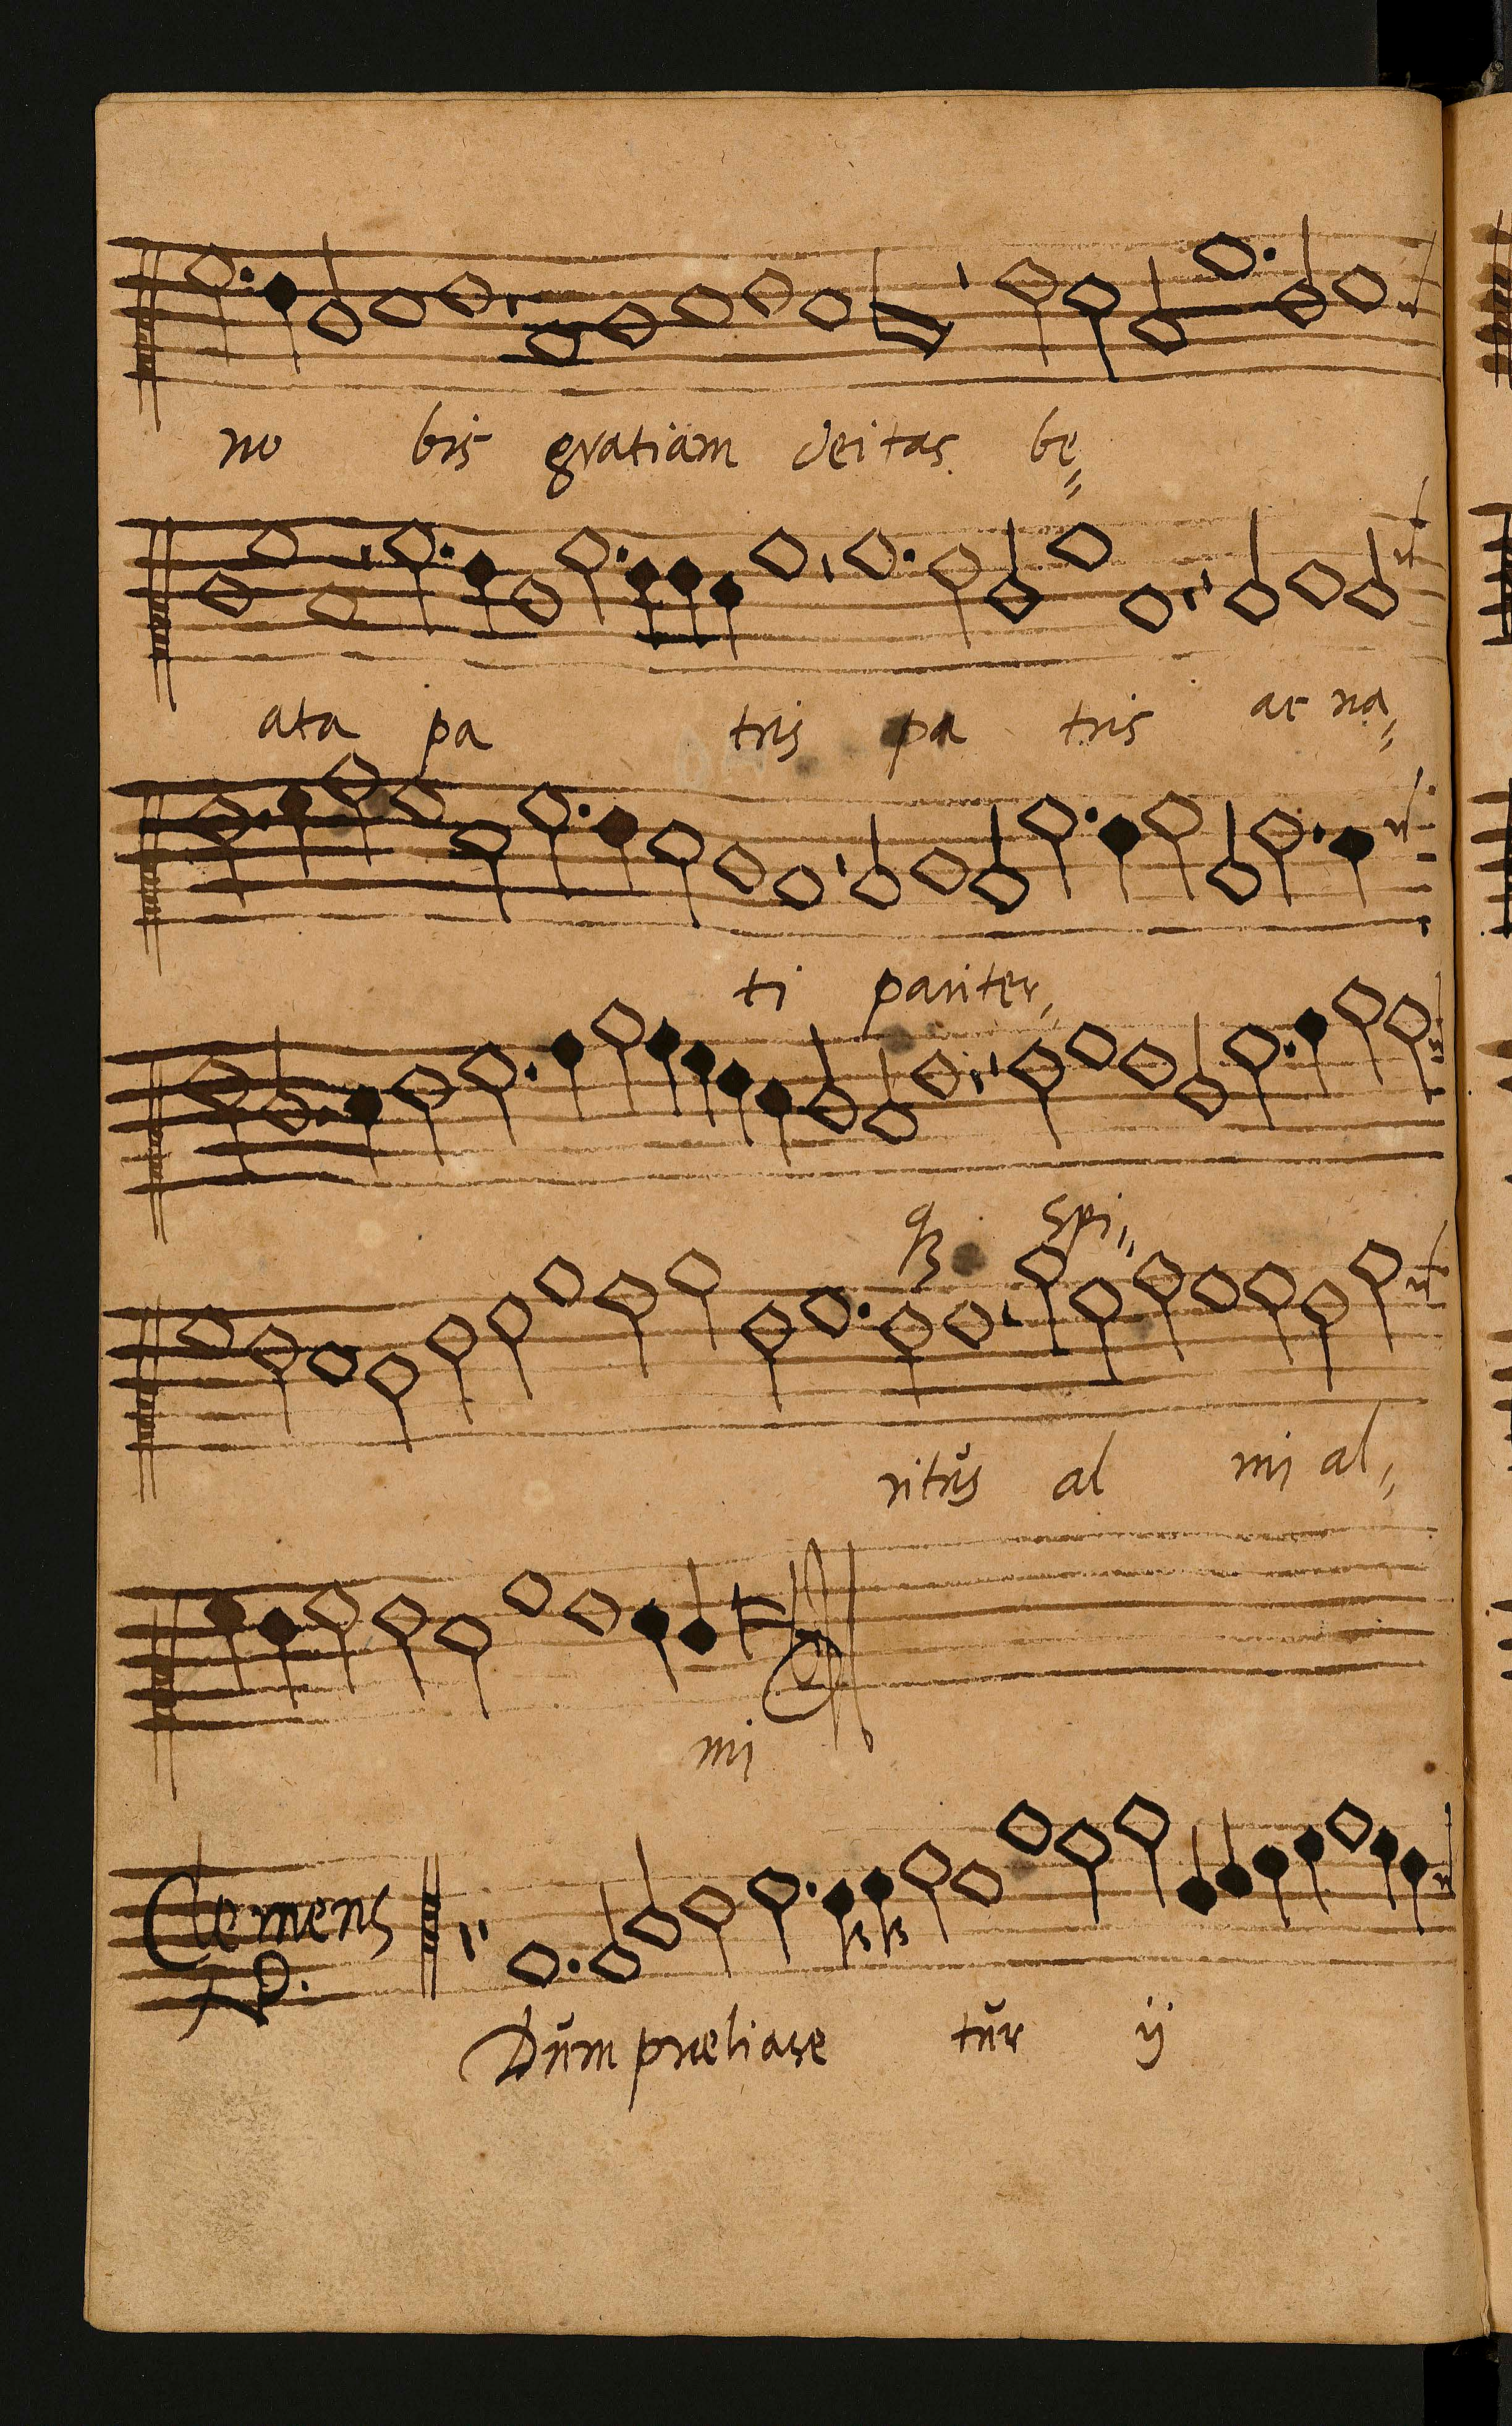 no bis gratiam deitas bę
ata pa tris pa tris ac na
ti pariter
qꝫ Spi
ritus al mi al
mi
Clemens
nõ P.
Dum præliare tur ij